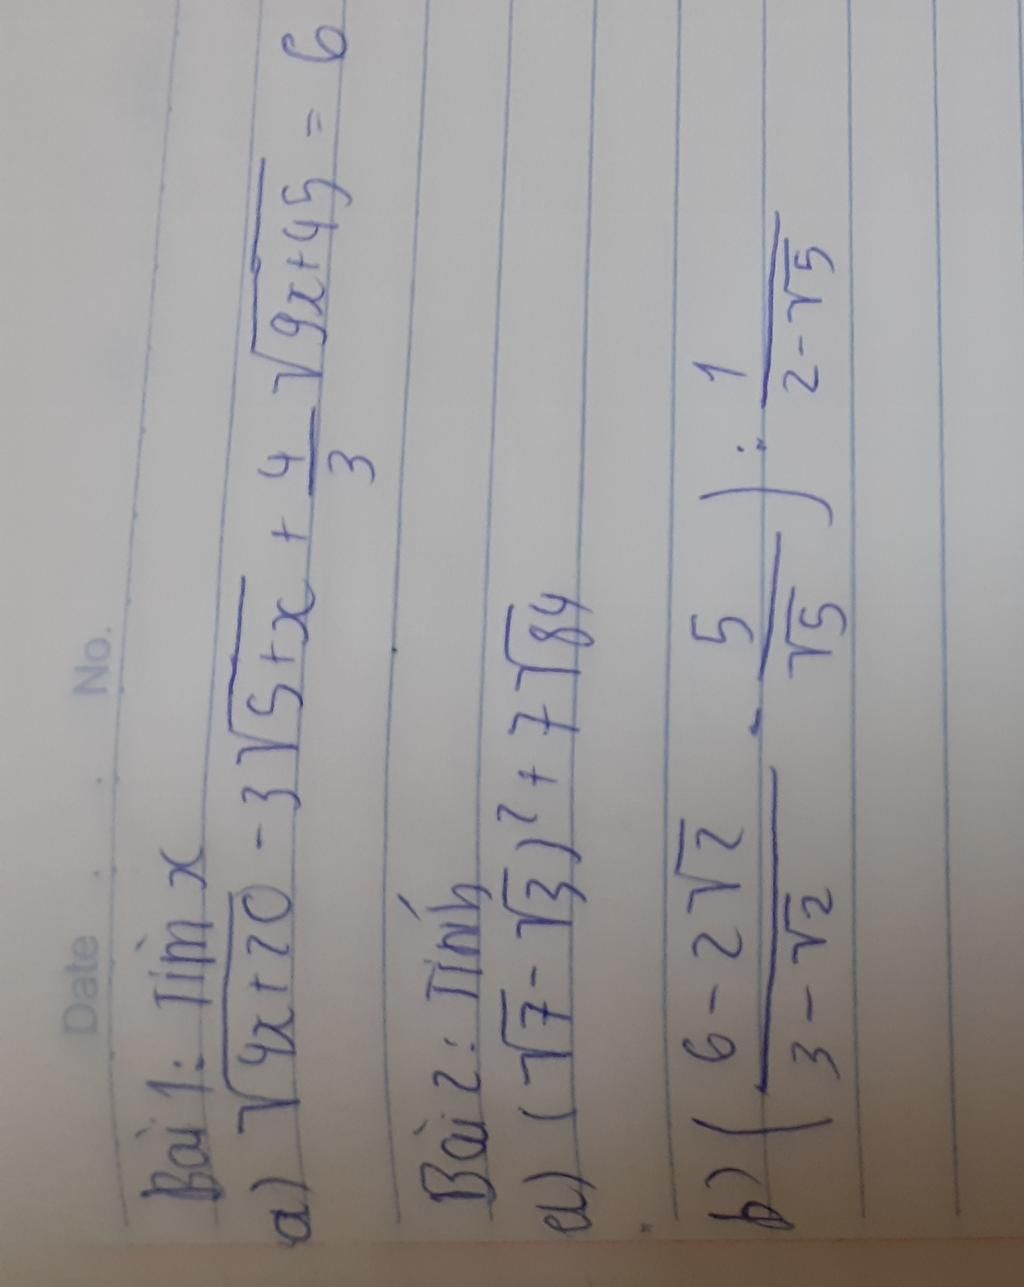 Date . . No.
Bài 1: Tìm x
a) √(4x+20) - 3√(5+x) + 4/3 √(9x+45) = 6
Bài 2: Tính
a) (√7 - √3)² + 7√84
b) ((6 - 2√2)/(3 - √2) - 5/√5) : 1/(2 - √5)